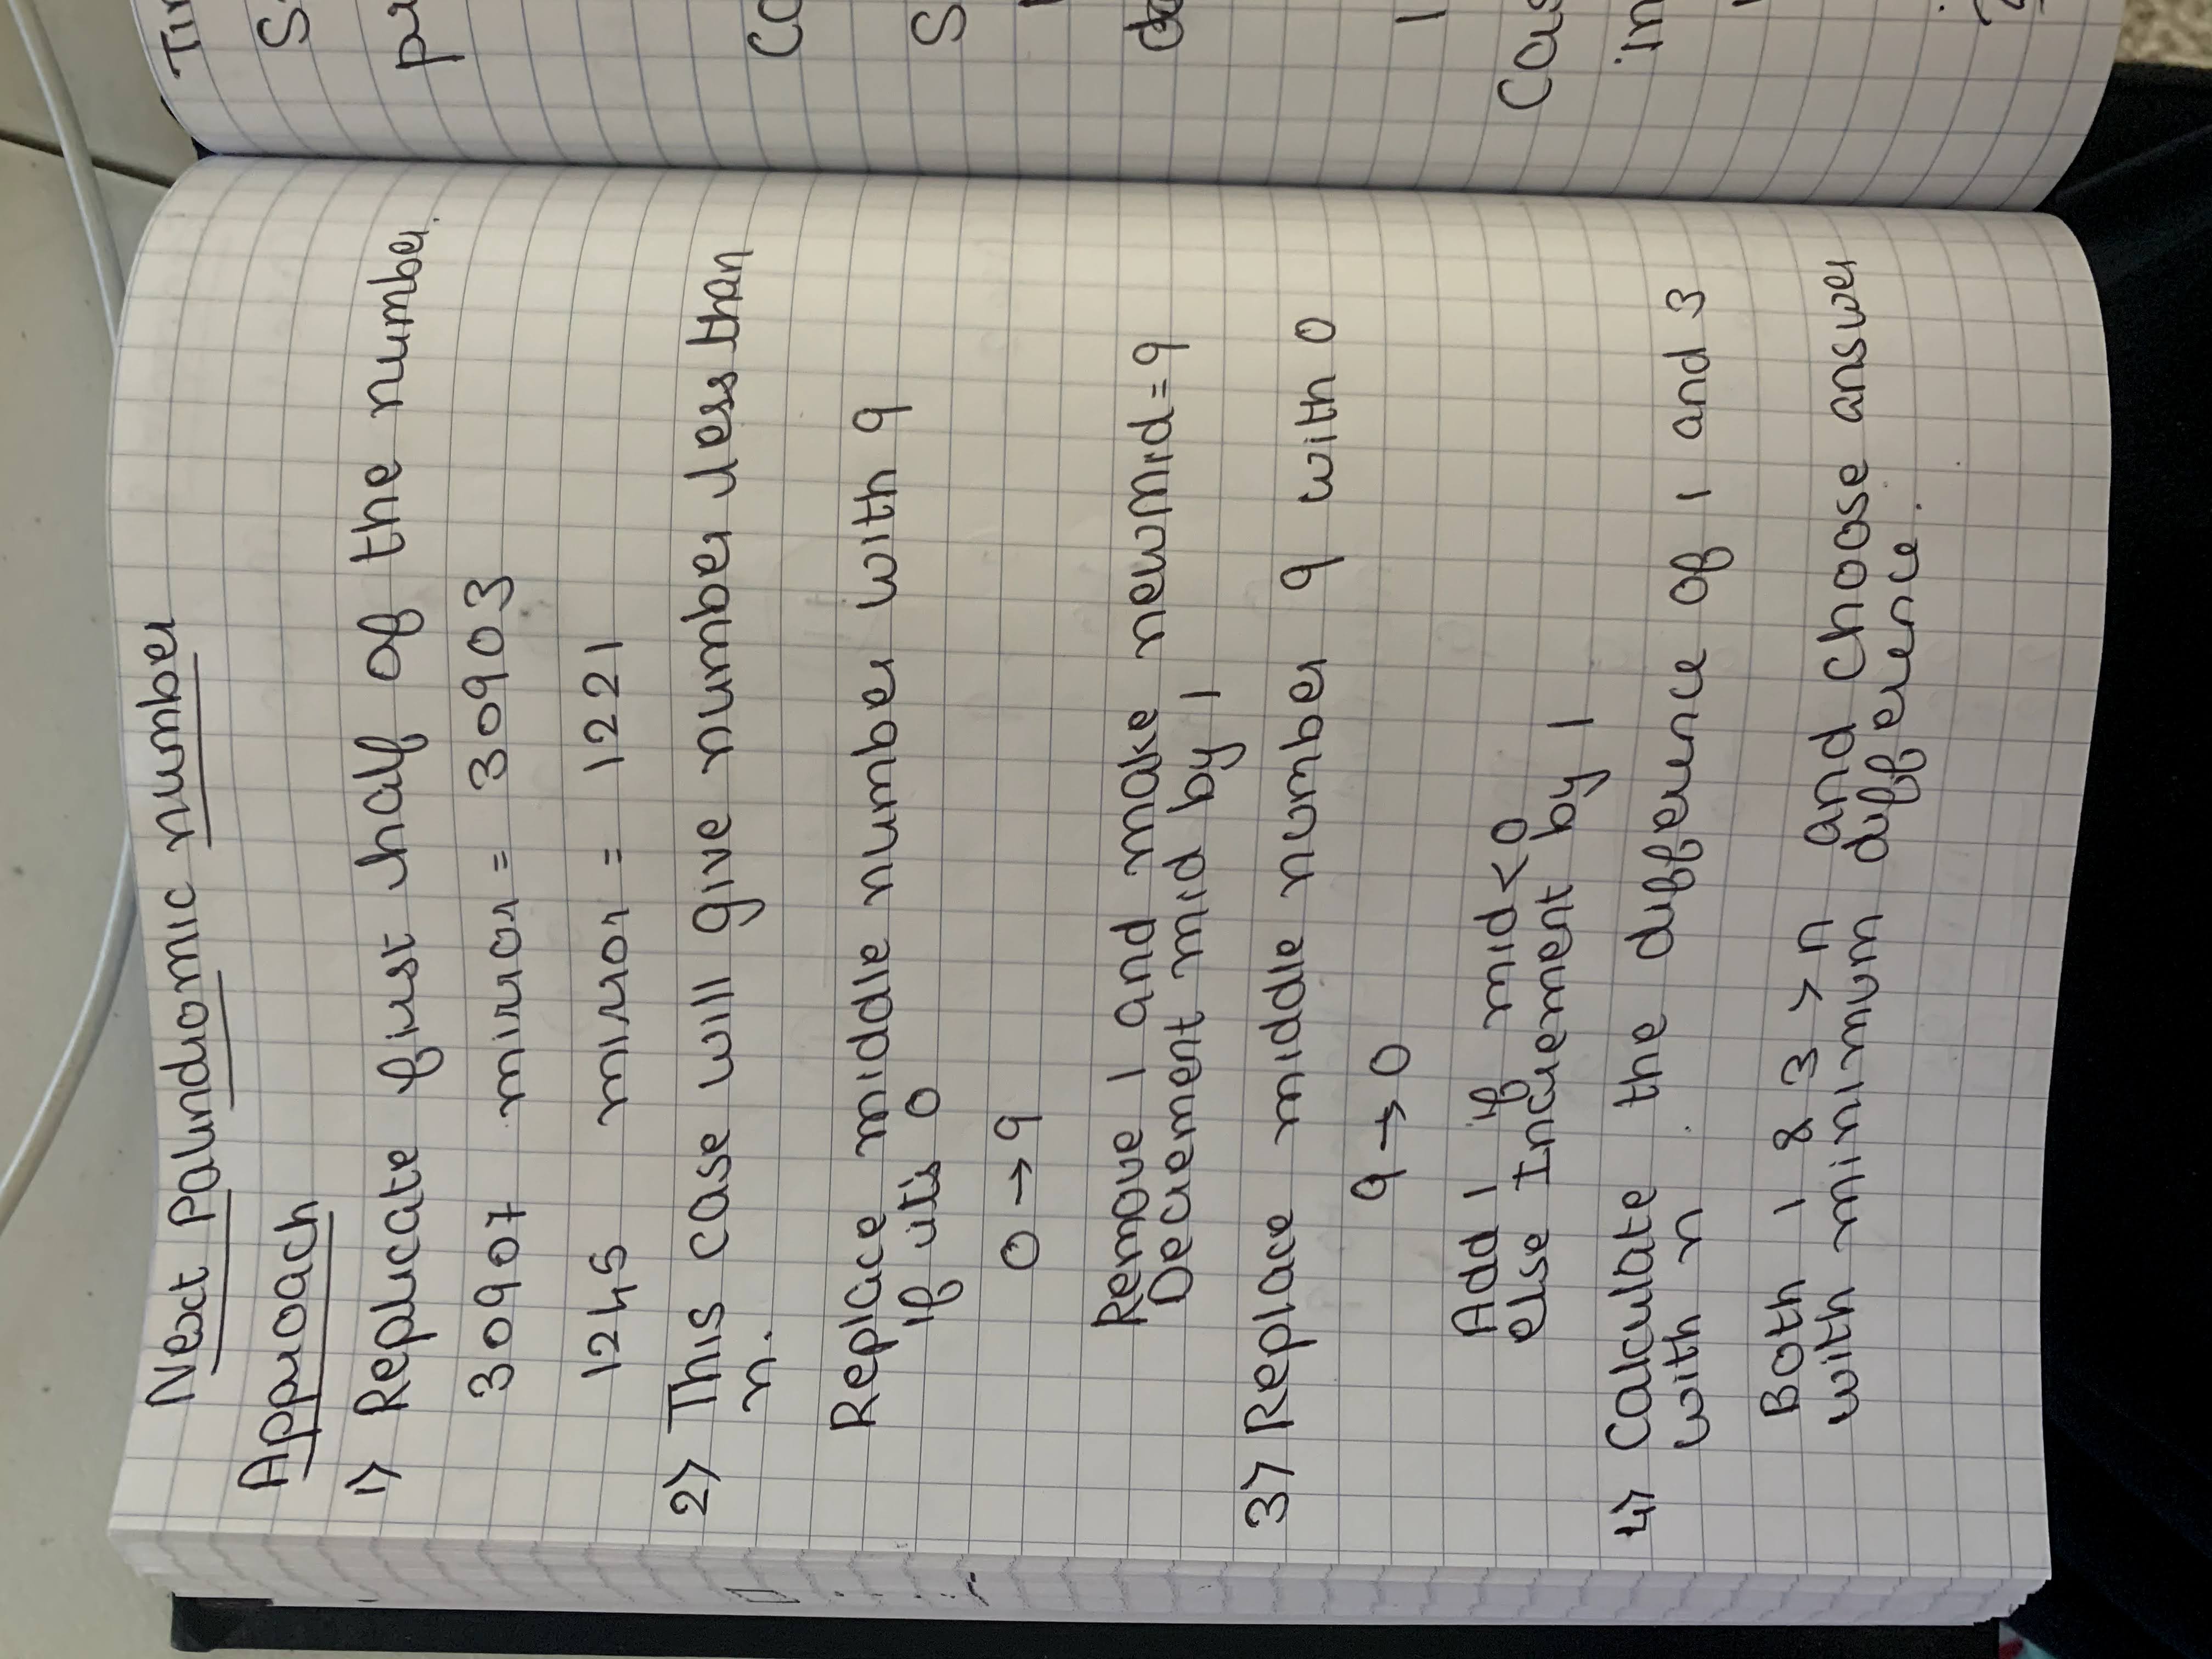 Next Palindromic number
Approach
1) Replicate first half of the number.
30907 mirror = 30903
1245 mirror = 1221
2) This case will give number less than
n.
Replace middle number with 9
if it's 0
0 → 9
Remove 1 and make newMid = 9
Decrement mid by 1
3) Replace middle number 9 with 0
9 → 0
Add 1 if mid < 0
else Increment by 1
4) Calculate the difference of 1 and 3
with n.
Both 1 & 3 > n and choose answer
with minimum difference.